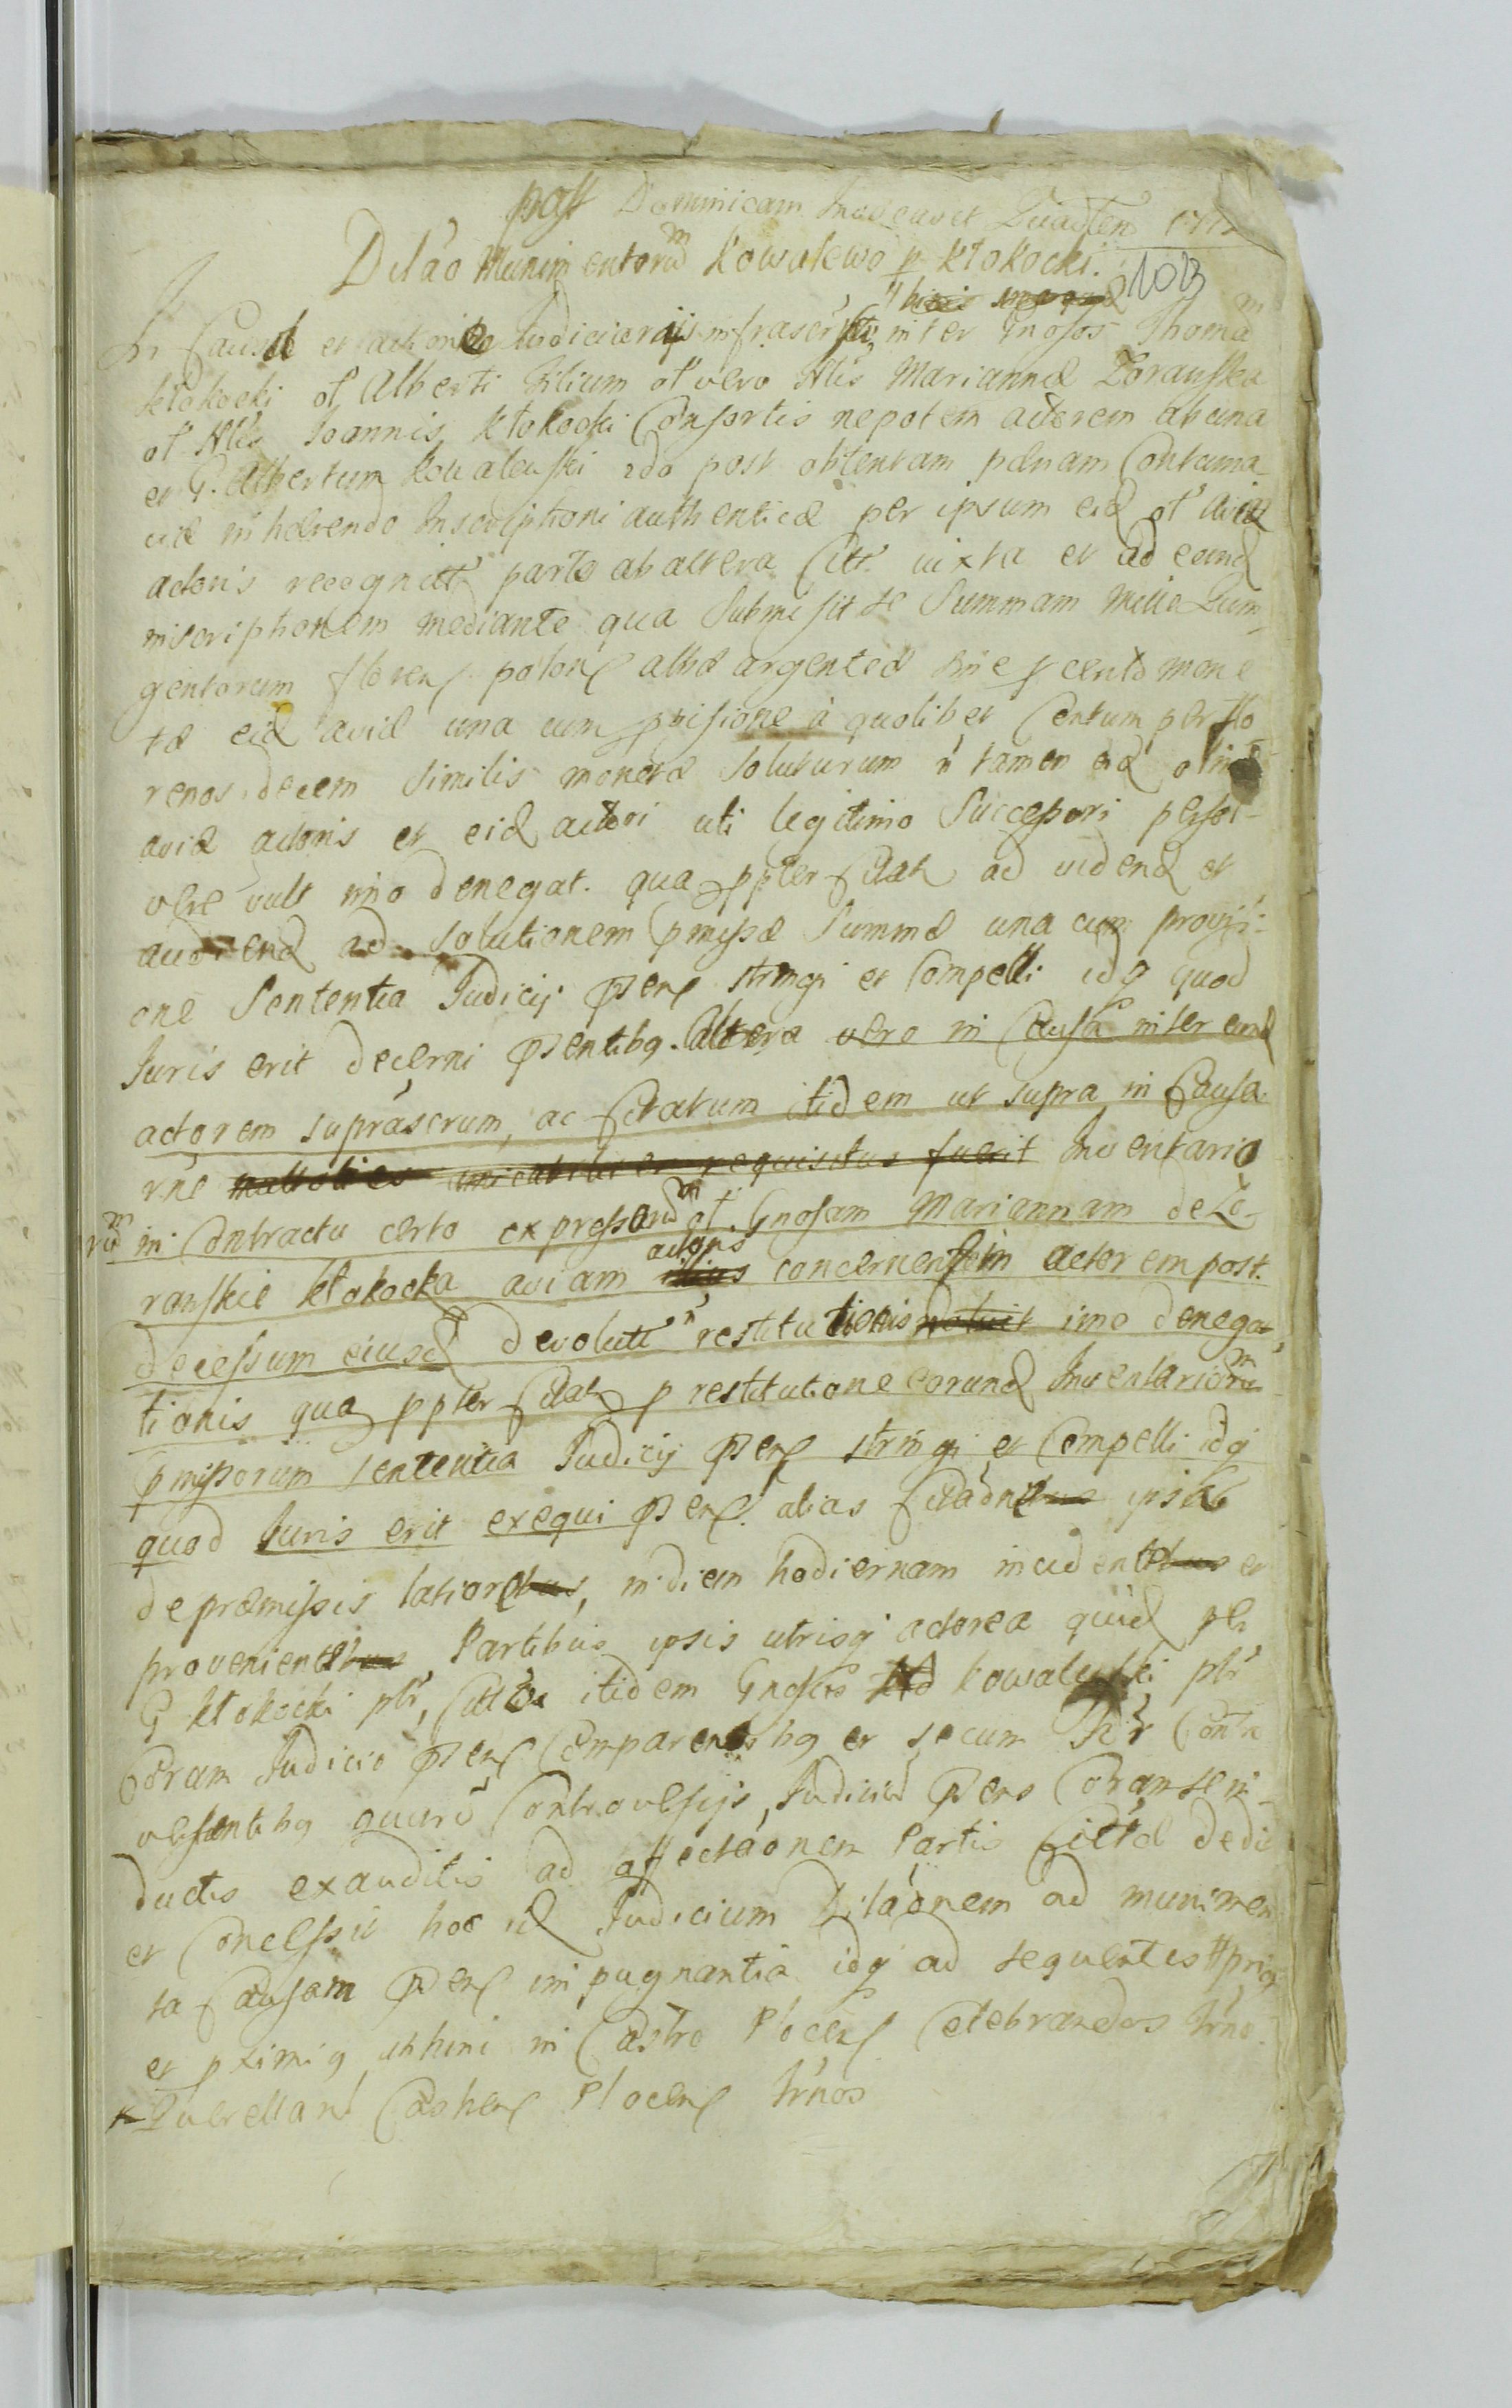 post Dominicam Invocavit Quadten
Dilaõ Munimentorũm Kowalewo p Kłokocki.
1013
In Causa et actione Judiciarijs infrascrptis inter Gnosos Thomam
Kłokocki ol Alberti Filium ol vero Mariannæ Zoranska
ol Joannis Kłokocki Consortis nepotem actorem ab una
et G. Albertum Kowalewski 2do post obtentam pœnam Contuma
ciæ inhærendo Inscriptioni authenticæ per ipsum eid ol aviæ
actoris recognitt parte ab altera Citt. iuxta et ad eand
inscriptionem mediante qua Submisit se Summam Mille Quin
gentorum floren polon albæ argenteæ mone
tæ eid aviæ una cum pvisione à quolibet Centum per flo
renos decem similis monetæ soluturum ñ tamen eid olim
aviæ actoris et eid actori uti legitimo Successori persol-
vere vult imo denegat. qua ppter Citat ad vidend et
audiend ad solutionem pmissæ Summæ una cum provisi-
one Sententia Judicij Pen stringi et Compelli idq quod
Juris erit decerni Pentibq. Altera vero in Causa inter eund
actorem suprascrum, ac Citatum itidem ut supra in Causa
rñe amicabiliter requisitus fuerit Inventario
rũm in Contractu certo expressorũm ol. Gnosam Mariannam de Zo-
ranskie Kłokocka aviam actoris concernentem actorem post
decessum eiusd devolutt ñ restitutionis noluit imo denega-
tionis qua ppter Citat p restitutione eorund Inventariorũm
pmissorum sententia Judicij Pen stringi et Compelli idq
quod Juris erit exequi Pen. alias Citaõne ipsis
de præmissis latiore, in diem hodiernam incidente et
proveniente Partibus ipsis utrisq actorea quid per
G Kłokocki pltr, Citta itidem Gnosus Kowalewski pltr
Coram Judicio Pen Comparentibq et secum Contro
versentibq quarũ Controversijs, Judiciũ Pens Coram se in-
ductis exauditis ad affectaõnem Partis Cittæ dedit
et Concessit hoc id Judicium Dilaõnem ad munimen
ta Causam Pen impugnantia idq ad sequentes
et pximiq in Castro Plocen Celebrandos trno
Querellarũ Castren Plocen trnos